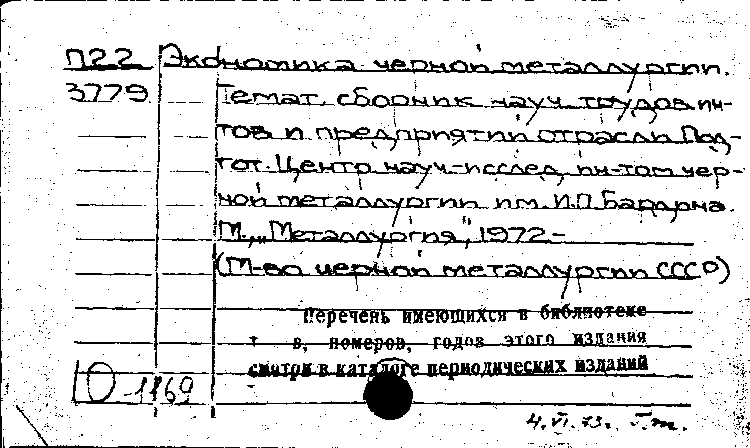 П22 Экономика черной металлургии.
3779 Темат. сборник науч. трудов ин-
тов и предприятий отрасли. Под-
гот. Центр. науч.-исслед. ин-том чер-
ной металлургии им. И.П. Бардина.
М., „Металлургия", 1972-
(М-во черной металлургии СССР)
Перечень имеющихся в библиотеке
т в, номеров, годов этого издания
смотри в каталоге периодических изданий
Ю-1169
4.VI.73г.